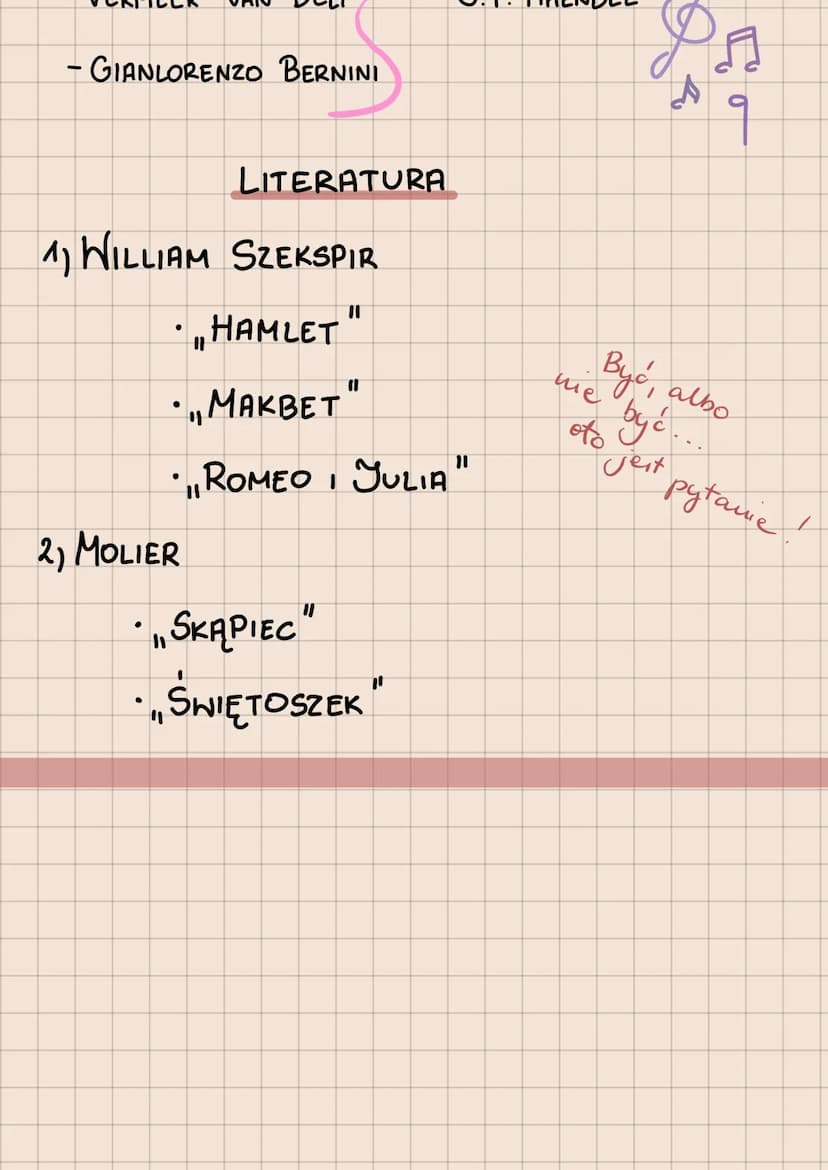 - Gianlorenzo Bernini
Literatura
1) William Szekspir
• „Hamlet"
• „Makbet"
• „Romeo i Julia"
Być, albo
nie być...
oto jest
pytanie!
2) Molier
• „Skąpiec"
• „Świętoszek"